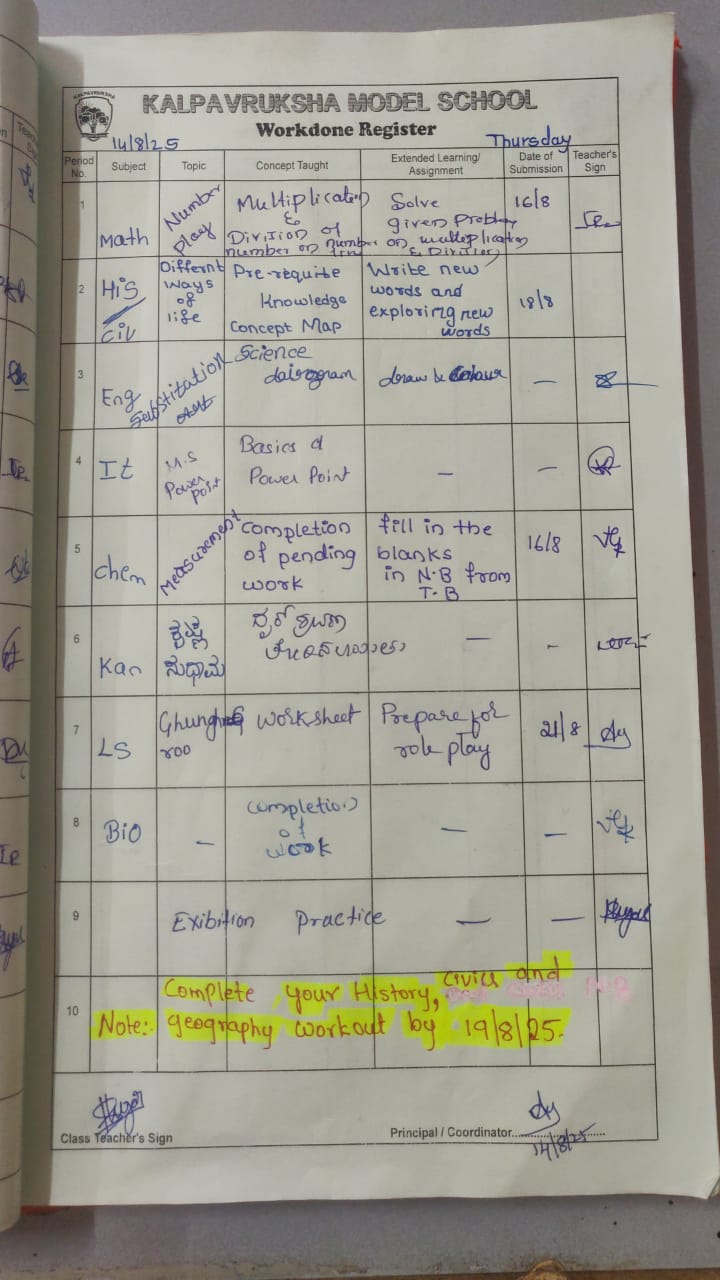 KALPAVRUKSHA
KALPAVRUKSHA MODEL SCHOOL
Workdone Register
14/8/25 Thursday
Period No. Subject Topic Concept Taught Extended Learning/ Assignment Date of Submission Teacher's Sign
1 Math Number play Multiplication & Division of number on number line Solve given problem on multiplication & Division 16/8
2 His/Civ Differnt ways of life Pre-requite Knowledge Concept Map Write new words and exploring new words 18/8
3 Eng Substitution Science dairogram draw & Colour —
4 It M.S Power point Basics of Power Point — —
5 Chem Measurement Completion of pending work fill in the blanks in N.B from T.B 16/8
6 Kan ಕೃಷ್ಣ ಸುಧಾಮ — -
7 LS Ghung roo worksheet Prepare for role play 21/8
8 BiO — Completion of work — —
9 Exibition Practice — —
10 Complete your History, Civics and
Note:- geography workout by 19/8/25.
Class Teacher's Sign
Principal / Coordinator
14/8/25